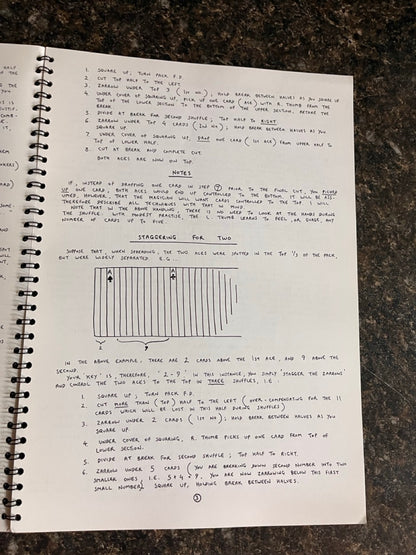 1. SQUARE UP, TURN PACK F.D.
2. CUT TOP HALF TO THE LEFT.
3. ZARROW UNDER TOP 3 (1ST NO.); HOLD BREAK BETWEEN HALVES AS YOU SQUARE UP
4. UNDER COVER OF SQUARING UP, PICK UP ONE CARD (ACE) WITH R. THUMB FROM THE
TOP OF THE LOWER SECTION TO THE BOTTOM OF THE UPPER SECTION, BEFORE THE
BREAK.
5. DIVIDE AT BREAK FOR SECOND SHUFFLE; TOP HALF TO RIGHT
6. ZARROW UNDER TOP 6 CARDS (2ND NO); HOLD BREAK BETWEEN HALVES AS YOU
SQUARE UP.
7. UNDER COVER OF SQUARING UP, DROP ONE CARD (1ST ACE) FROM UPPER HALF TO
TOP OF LOWER HALF.
8. CUT AT BREAK AND COMPLETE CUT.
BOTH ACES ARE NOW ON TOP.
NOTES
IF INSTEAD OF DROPPING ONE CARD IN STEP 7 PRIOR TO THE FINAL CUT, YOU PICKED
UP ONE CARD, BOTH ACES WOULD END UP CONTROLLED TO THE BOTTOM. IT WILL BE ASS-
UMED, HOWEVER, THAT THE MAGICIAN WILL WANT CARDS CONTROLLED TO THE TOP. I WILL
THEREFORE DESCRIBE ALL TECHNIQUES WITH THAT IN MIND.
NOTE THAT IN THE ABOVE HANDLING, THERE IS NO NEED TO LOOK AT THE HANDS DURING
THE SHUFFLE. WITH MODEST PRACTICE, THE L THUMB LEARNS TO FEEL, OR GUAGE, ANY
NUMBER OF CARDS UP TO FIVE.
STAGGERING FOR TWO
SUPPOSE THAT, WHEN SPREADING, THE TWO ACES WERE SPOTTED IN THE TOP 1/3 OF THE PACK,
BUT WERE WIDELY SEPARATED. E.G...
A A
2 9
IN THE ABOVE EXAMPLE, THERE ARE 2 CARDS ABOVE THE 1ST ACE, AND 9 ABOVE THE
SECOND.
YOUR 'KEY' IS, THEREFORE, '2-9'. IN THIS INSTANCE, YOU SIMPLY STAGGER THE ZARROWS
AND CONTROL THE TWO ACES TO THE TOP IN THREE SHUFFLES, I.E.
1. SQUARE UP; TURN PACK F.D.
2. CUT MORE THAN (TOP) HALF TO THE LEFT (OVER-COMPENSATING FOR THE 11
CARDS WHICH WILL BE LOST IN THIS HALF DURING SHUFFLES)
3. ZARROW UNDER 2 CARDS (1ST NO); HOLD BREAK BETWEEN HALVES AS YOU
SQUARE UP.
4. UNDER COVER OF SQUARING, R. THUMB PICKS UP ONE CARD FROM TOP OF
LOWER SECTION.
5. DIVIDE AT BREAK FOR SECOND SHUFFLE; TOP HALF TO RIGHT.
6. ZARROW UNDER 5 CARDS (YOU ARE BREAKING DOWN SECOND NUMBER INTO TWO
SMALLER ONES; I.E. 5+4=9. YOU ARE NOW ZARROWING BELOW THIS FIRST
SMALL NUMBER). SQUARE UP, HOLDING BREAK BETWEEN HALVES.
3